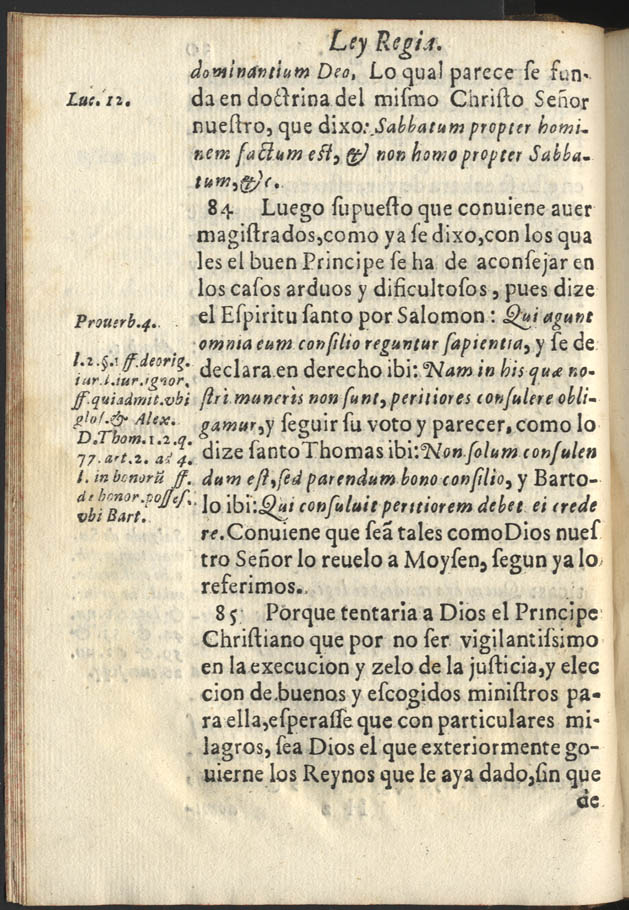 Ley Regia.
dominantium Deo. Lo qual parece ſe fun-
Luc. 12.
da en doctrina del miſmo Chriſto Señor
nueſtro, que dixo: Sabbatum propter homi-
nem factum eſt, & non homo propter Sabba-
tum, &c.
84 Luego ſupueſto que conuiene auer
magiſtrados, como ya ſe dixo, con los qua
les el buen Principe ſe ha de aconſejar en
los caſos arduos y dificultoſos, pues dize
Prouerb. 4.
el Eſpiritu ſanto por Salomon: Qui agunt
omnia cum conſilio reguntur ſapientia, y ſe de
l. 2. §. 1 ff. de orig.
iur. l. iur. ignor.
ff. qui admit. vbi
gloſ. & Alex.
D. Thom. 1. 2. q.
77. art. 2. ad 4.
l. in honorũ ff.
de honor. poſſeſ.
vbi Bart.
declara en derecho ibi: Nam in his quæ no-
ſtri muneris non ſunt, peritiores conſulere obli-
gamur, y ſeguir ſu voto y parecer, como lo
dize ſanto Thomas ibi: Non ſolum conſulen
dum eſt, ſed parendum bono conſilio, y Barto-
lo ibi: Qui conſuluit peritiorem debet ei crede
re. Conuiene que ſeã tales como Dios nueſ
tro Señor lo reuelo a Moyſen, ſegun ya lo
referimos.
85 Porque tentaria a Dios el Principe
Chriſtiano que por no ſer vigilantiſsimo
en la execucion y zelo de la juſticia, y elec
cion de buenos y eſcogidos miniſtros pa-
ra ella, eſperaſſe que con particulares mi-
lagros, ſea Dios el que exteriormente go-
uierne los Reynos que le aya dado, ſin que
de